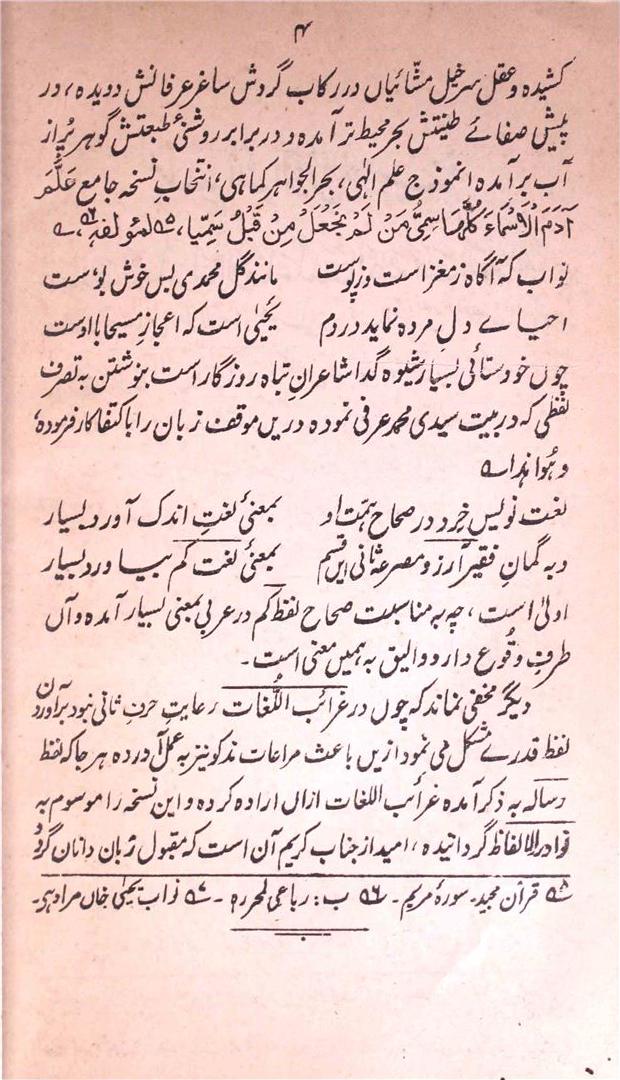 ۴
کشیده و عقل سرخیل مشّائیاں در رکاب گردش ساغر عرفانش دویده، در
پیش صفائے طینتش بحر محیط تر آمده و در برابر روشنئ طبعتش گوهر پُر از
آب بر آمده انموذج علم الٰہی، بحر الجواهر کماہی، انتخاب نسخہ جامع عَلَّمَ
آدَمَ الْاَسْمَاءَ کُلَّهَا سِمِیُّ مَنْ لَمْ نَجْعَلْ مِنْ قَبْلُ سَمِیًّا،۵۵ لمؤلفہٖ،۵۶
نواب که آگاه ز مغز است و ز پوست مانند گل محمدی بس خوش بوست
احیاے دل مرده نماید در دم یحییٰ است که اعجاز مسیحا با اوست
چوں خودستائی بسیار شیوه گدا شاعرانِ تباه روزگار است بنوشتن به تصرف
لفظی که در بیت سیدی محمد عرفی نموده دریں موقف زبان را باکتفا کار فرموده،
و هُوا هٰذا
لغت نویس خِرد در صحاح همّت او بمعنئ لغتِ اندک آورد بسیار
و به گمانِ فقیر آرزو مصرعهٔ ثانی ایں قسم بمعنئ لغت کم بیاورد بسیار
اولیٰ است، چه به مناسبت صحاح لفظ کم در عربی بمعنی بسیار آمده و آں
طرفِ وقوع دارد و الیق به همیں معنی است۔
دیگر مخفی نماند که چوں در غرائب اللُّغات رعایتِ حرف ثانی نبود بر آوردن
لفظ قدرے مشکل می نمود ازیں باعث مراعات مذکور نیز به عمل آورده هر جا که لفظ
رساله به ذکر آمده غرائب اللغات ازاں اراده کرده و ایں نسخه را موسوم به
نوادر الالفاظ گردانیده، امید از جناب کریم آن است که مقبول زبان دانان گردد
۵۵ قرآن مجید۔ سورهٔ مریم۔ ۵۶ ب: رباعی لمحرره۔ ۵۷ نواب یحییٰ خاں مراد ہے۔